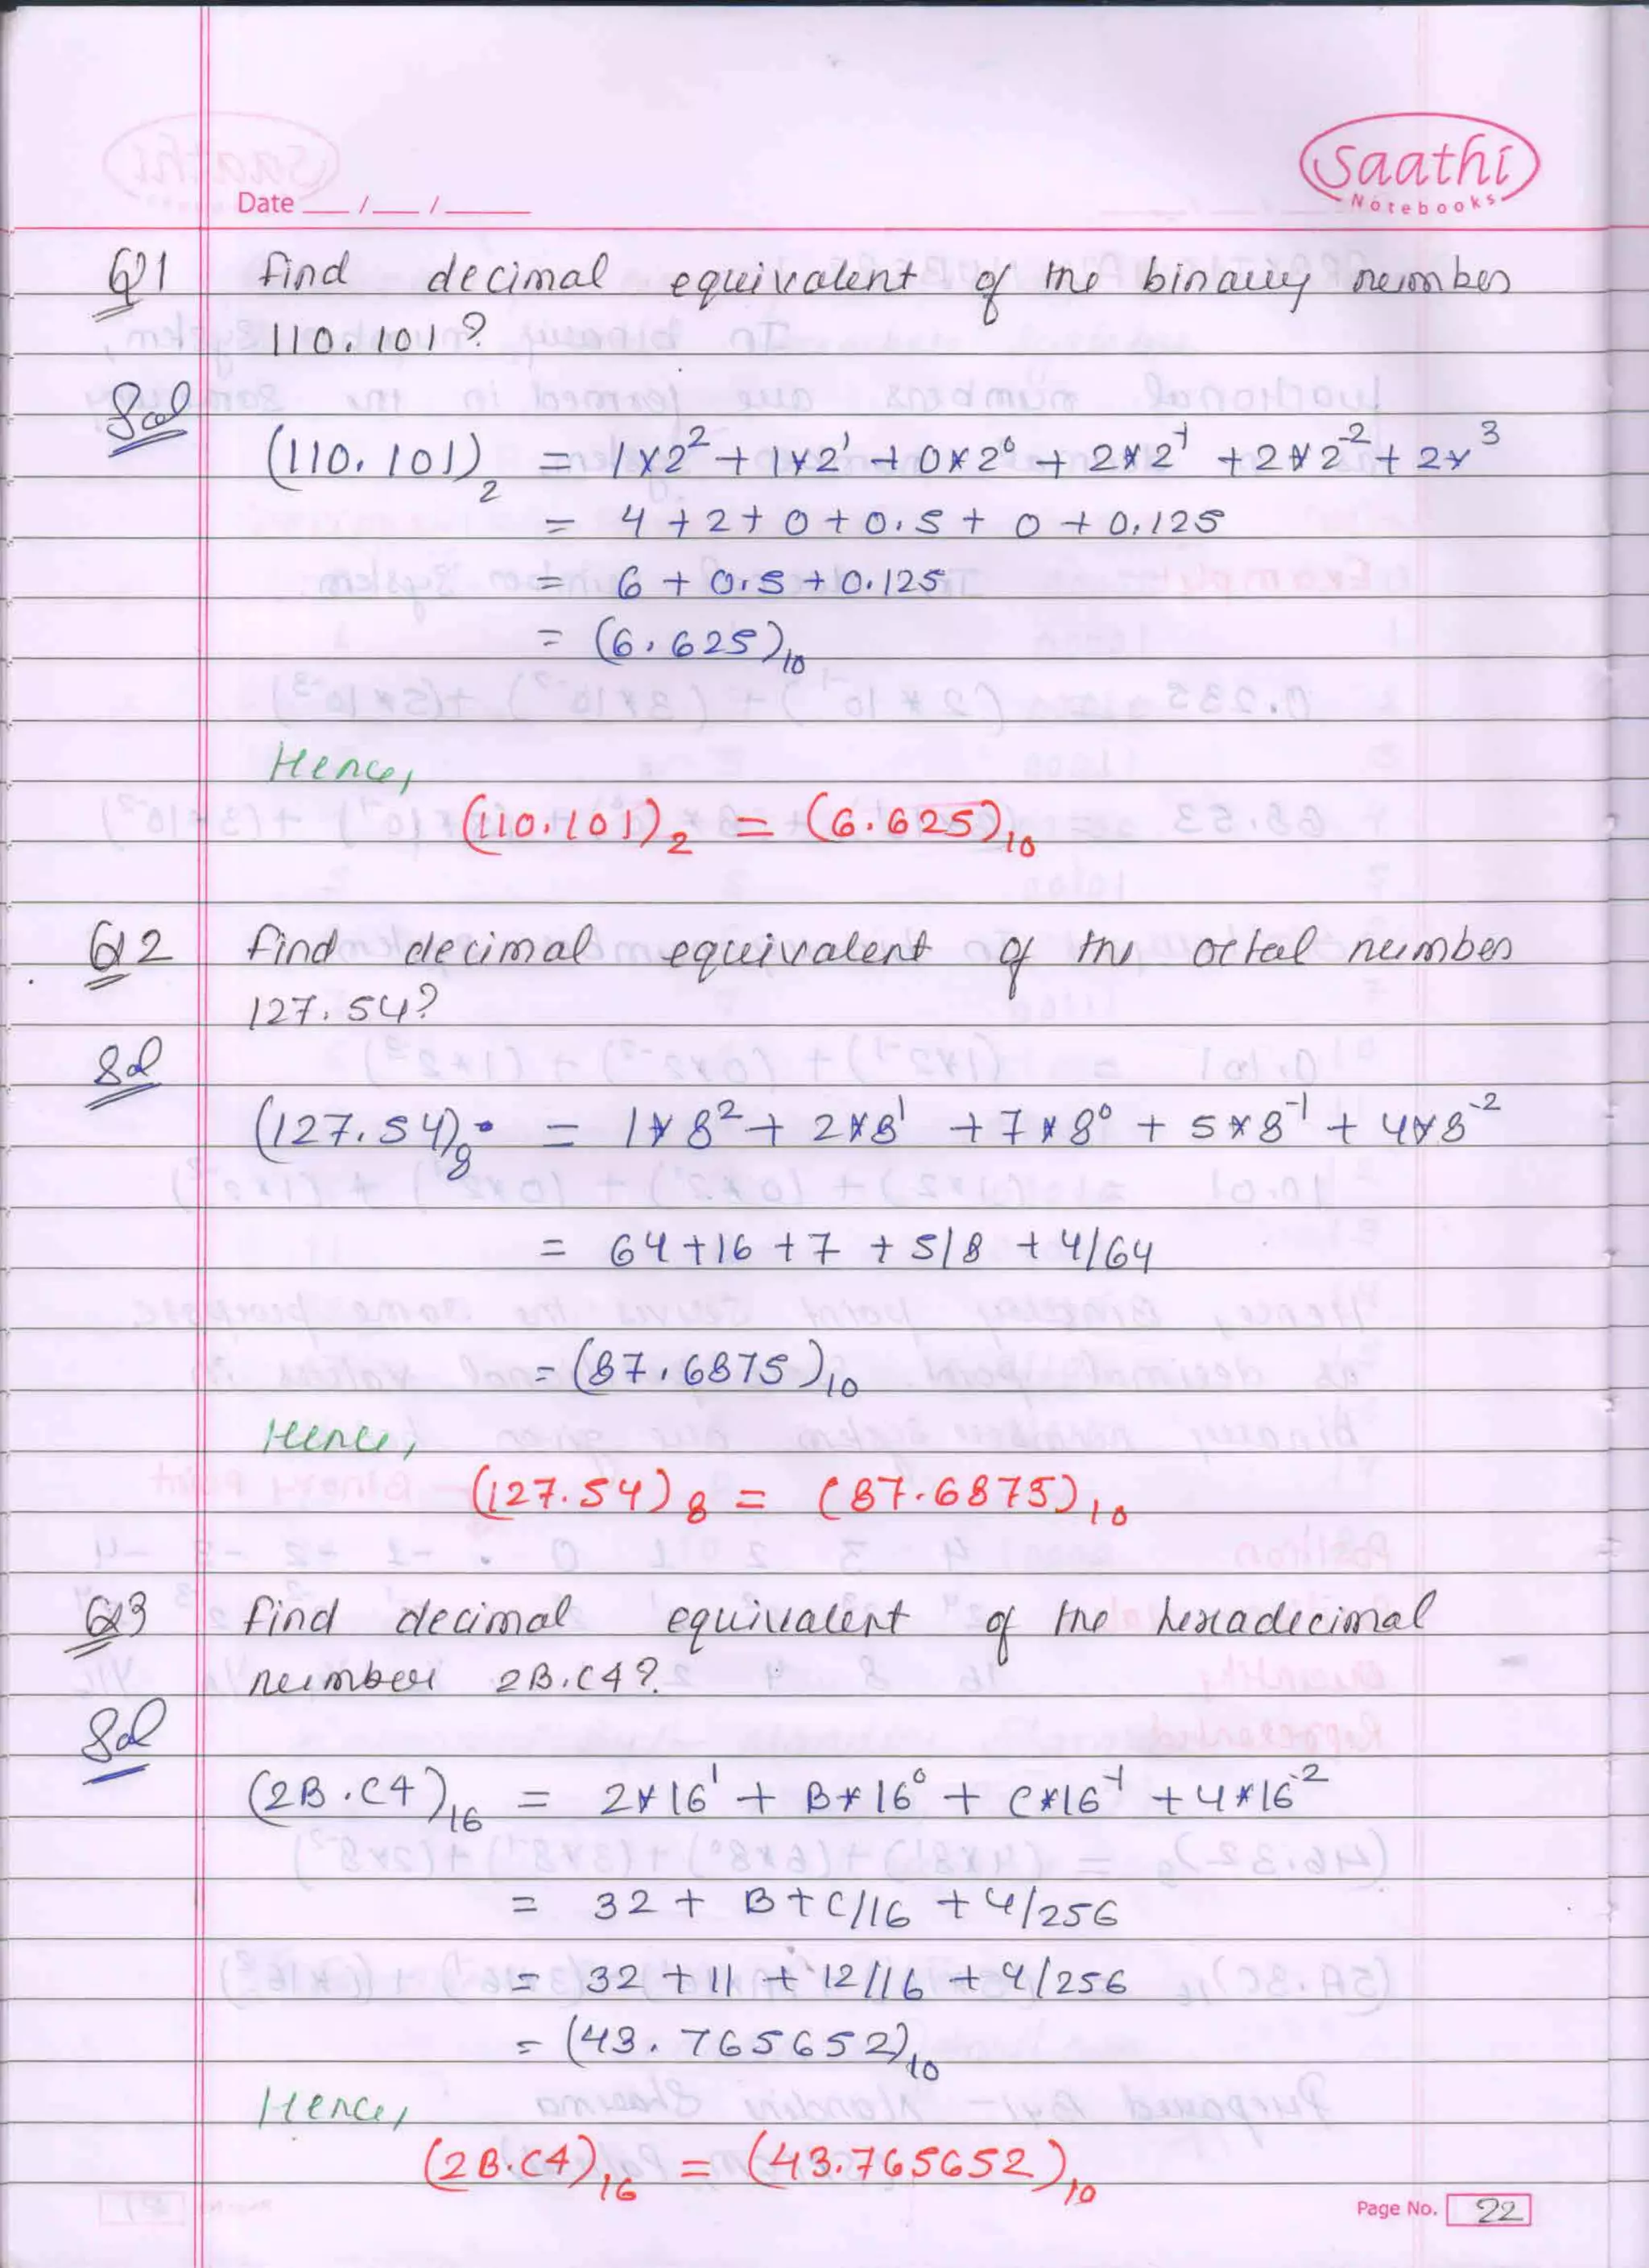 Saathi
Notebooks
Date __ / __ / ____
Q1 Find decimal equivalent of the binary number
110.101?
Sol
(110.101)₂ = 1×2² + 1×2¹ + 0×2⁰ + 2×2⁻¹ + 2×2⁻² + 2×³
= 4 + 2 + 0 + 0.5 + 0 + 0.125
= 6 + 0.5 + 0.125
= (6.625)₁₀
Hence,
(110.101)₂ = (6.625)₁₀
Q2 Find decimal equivalent of the octal number
127.54?
Sol
(127.54)₈ = 1×8² + 2×8¹ + 7×8⁰ + 5×8⁻¹ + 4×8⁻²
= 64 + 16 + 7 + 5/8 + 4/64
= (87.6875)₁₀
Hence,
(127.54)₈ = (87.6875)₁₀
Q3 Find decimal equivalent of the hexadecimal
number 2B.C4?
Sol
(2B.C4)₁₆ = 2×16¹ + B×16⁰ + C×16⁻¹ + 4×16⁻²
= 32 + B + C/16 + 4/256
= 32 + 11 + 12/16 + 4/256
= (43.765652)₁₀
Hence,
(2B.C4)₁₆ = (43.765652)₁₀
Page No. 22